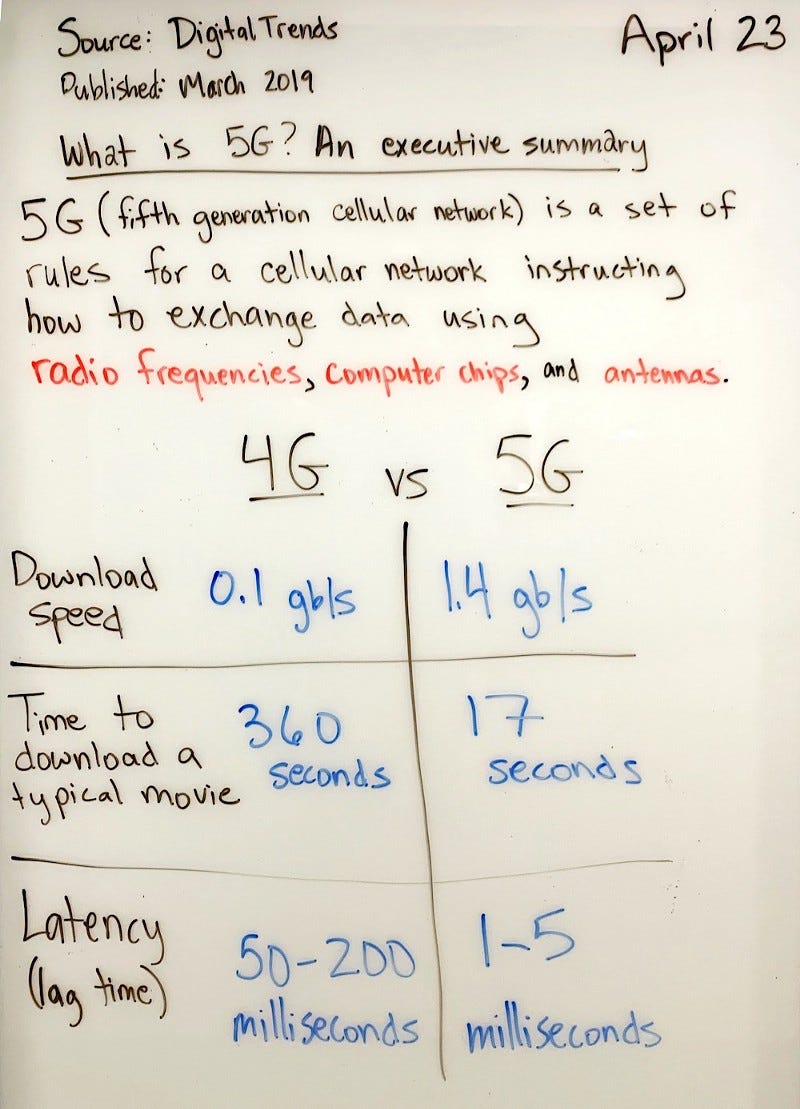 Source: Digital Trends
April 23
Published: March 2019
What is 5G? An executive summary
5G (fifth generation cellular network) is a set of
rules for a cellular network instructing
how to exchange data using
radio frequencies, computer chips, and antennas.
4G vs 5G
Download speed
0.1 gb/s
1.4 gb/s
Time to
download a
typical movie
360
seconds
17
seconds
Latency
(lag time)
50-200
milliseconds
1-5
milliseconds